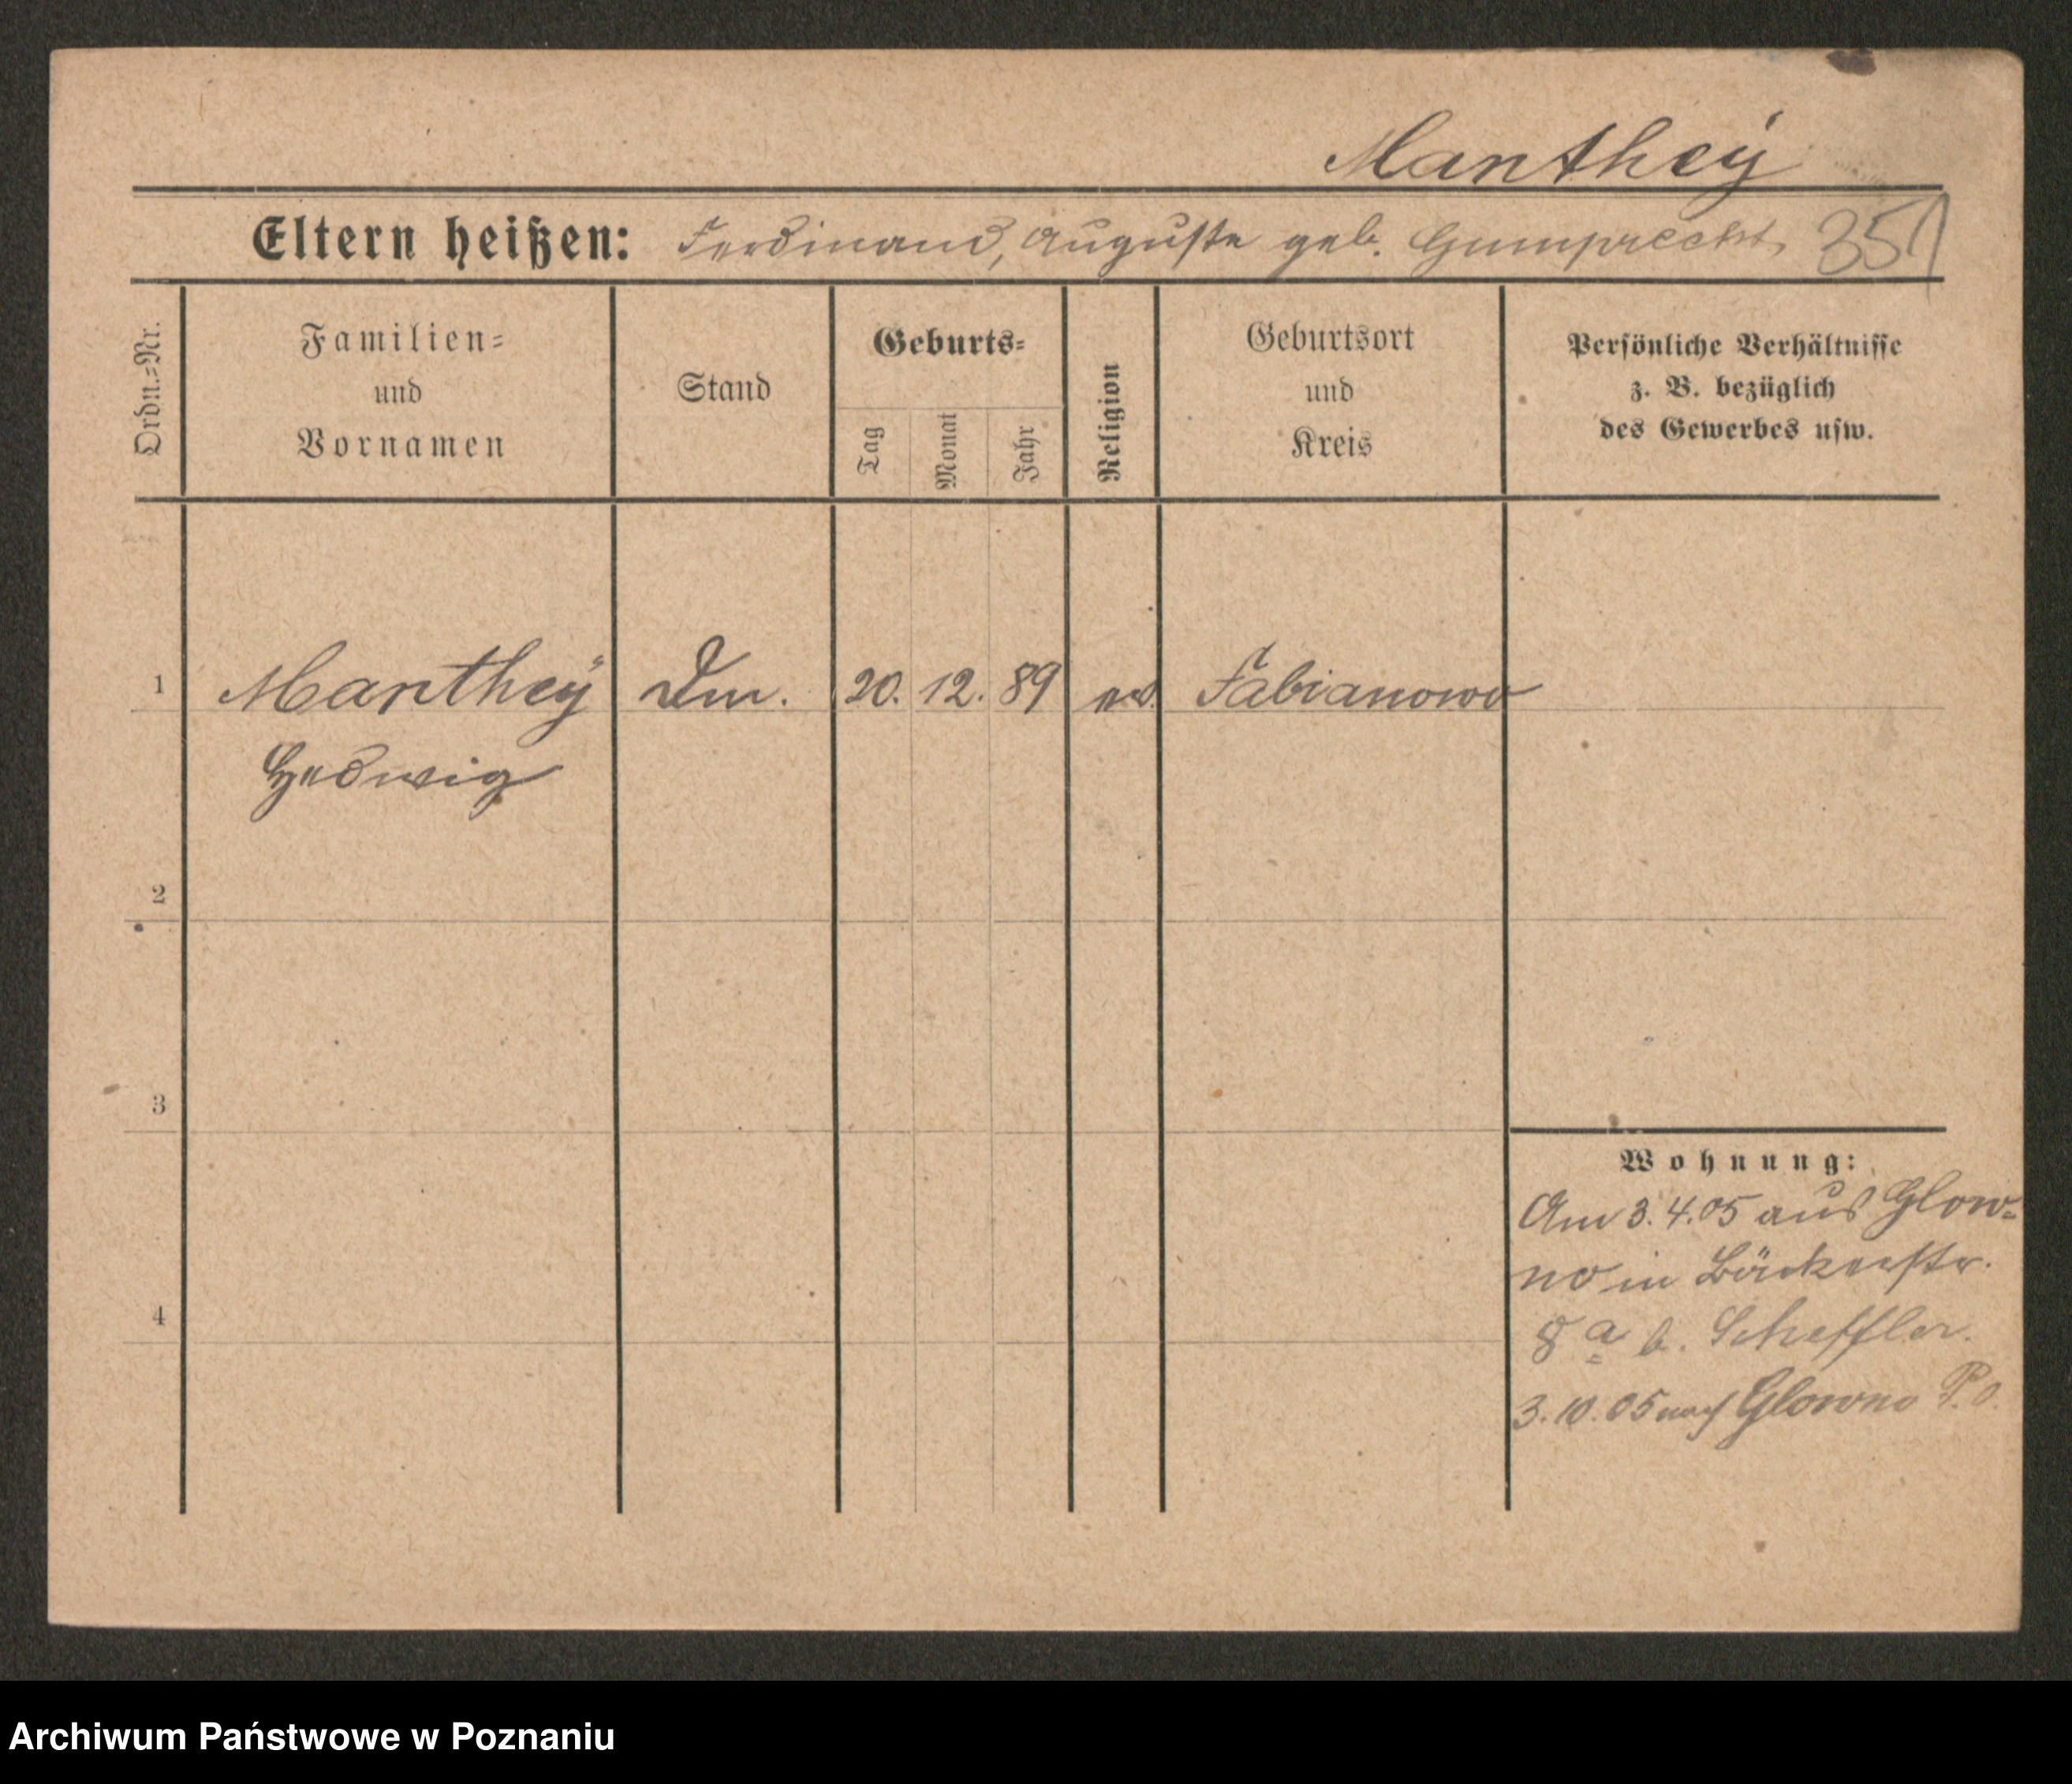 Manthey
Eltern heißen: Ferdinand, Auguste geb. Gumprecht, 351
Ordn.=Nr.
Familien=
und
Vornamen
Stand
Geburts=
Tag
Monat
Jahr
Religion
Geburtsort
und
Kreis
Persönliche Verhältnisse
z. B. bezüglich
des Gewerbes usw.
1 Manthey 20. 12. 89 Fabianowo
Hedwig
2
3
4
Wohnung:
Am 3. 4. 05 aus Glow=
no in Bäckerstr.
8 a b. Scheffler.
3. 10. 05 nach Glowno P. O.
Archiwum Państwowe w Poznaniu